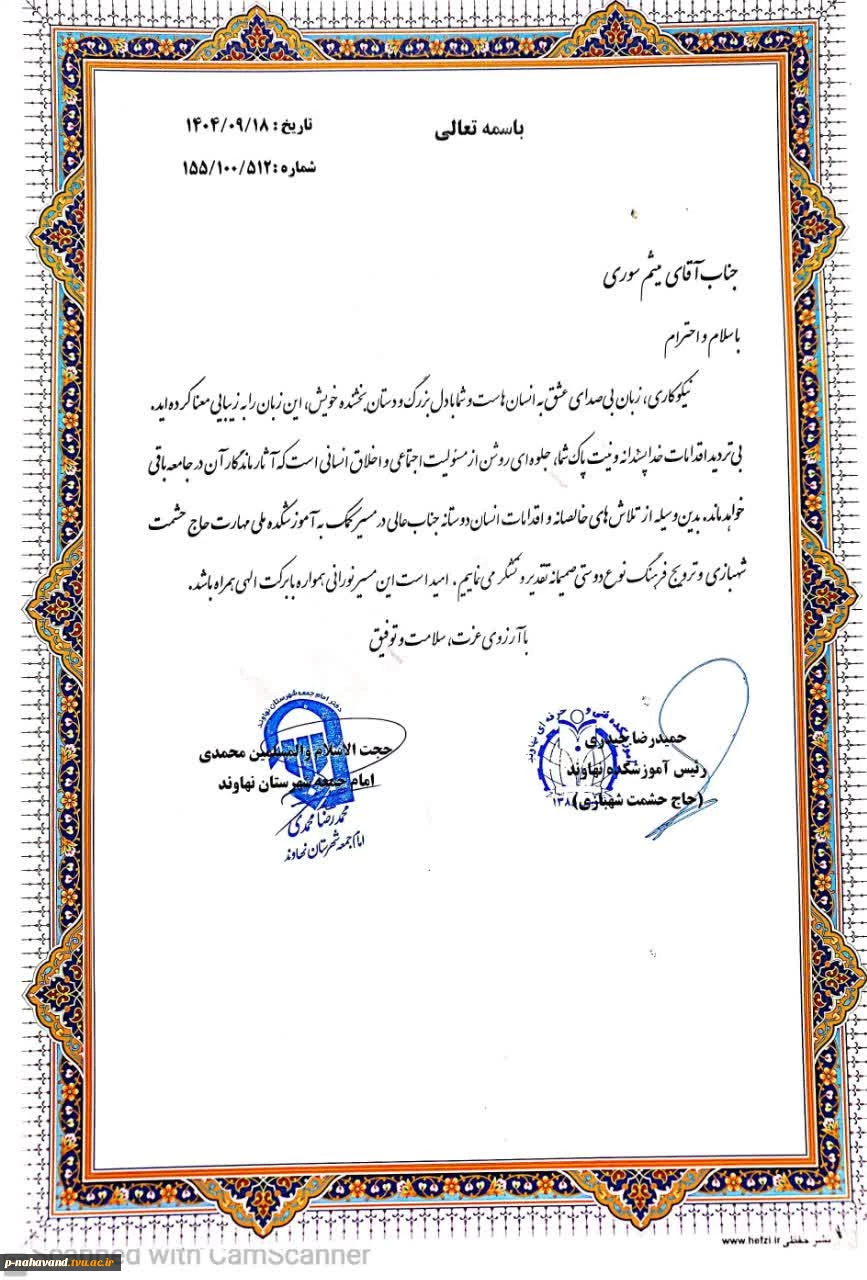 باسمه تعالی
تاریخ : ۱۴۰۴/۰۹/۱۸
شماره :۱۵۵/۱۰۰/۵۱۲
جناب آقای میثم سوری
با سلام و احترام
نیکوکاری، زبان بی صدای عشق به انسان هاست و شما با دل بزرگ و دستان بخشنده خویش، این زبان را به زیبایی معنا کرده اید.
بی تردید اقدامات خداپسندانه و نیت پاک شما، جلوه ای روشن از مسئولیت اجتماعی و اخلاق انسانی است که آثار ماندگار آن در جامعه باقی
خواهد ماند. بدین وسیله از تلاش های خالصانه و اقدامات انسان دوستانه جناب عالی در مسیر کمک به آموزشکده ملی مهارت حاج حشمت
شهبازی و ترویج فرهنگ نوع دوستی صمیمانه تقدیر و تشکر می نماییم. امید است این مسیر نورانی همواره با برکت الهی همراه باشد.
با آرزوی عزت، سلامت و توفیق
آموزشکده فنی و حرفه ای نهاوند
حمیدرضا حیدری
رئیس آموزشکده نهاوند
(حاج حشمت شهبازی)
دفتر امام جمعه شهرستان نهاوند
حجت الاسلام والمسلمین محمدی
امام جمعه شهرستان نهاوند
محمدرضا محمدی
امام جمعه شهرستان نهاوند
نشر حفظی www.hefzi.ir
Scanned with CamScanner
p-nahavand.tvu.ac.ir